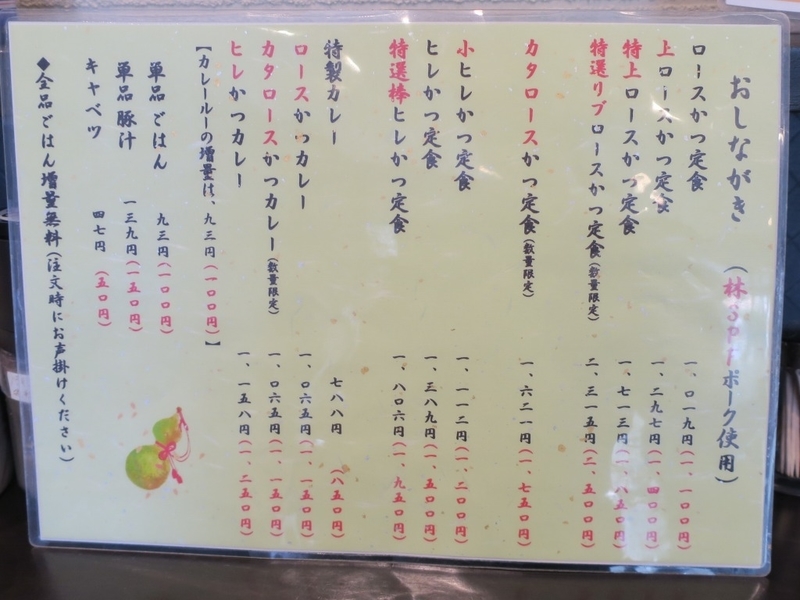 おしながき （林SPFポーク使用）
ロースかつ定食 一、〇一九円（一、一〇〇円）
上ロースかつ定食 一、二九七円（一、四〇〇円）
特上ロースかつ定食 一、七一三円（一、八五〇円）
特選リブロースかつ定食（数量限定） 二、三一五円（二、五〇〇円）
カタロースかつ定食（数量限定） 一、六二一円（一、七五〇円）
小ヒレかつ定食 一、一一二円（一、二〇〇円）
ヒレかつ定食 一、三八九円（一、五〇〇円）
特選棒ヒレかつ定食 一、八〇六円（一、九五〇円）
特製カレー 七八八円（八五〇円）
ロースかつカレー 一、〇六五円（一、一五〇円）
カタロースかつカレー（数量限定） 一、〇六五円（一、一五〇円）
ヒレかつカレー 一、一五八円（一、二五〇円）
【カレールーの増量は、九三円（一〇〇円）】
単品ごはん 九三円（一〇〇円）
単品豚汁 一三九円（一五〇円）
キャベツ 四七円（五〇円）
◆全品ごはん増量無料（注文時にお声掛けください）